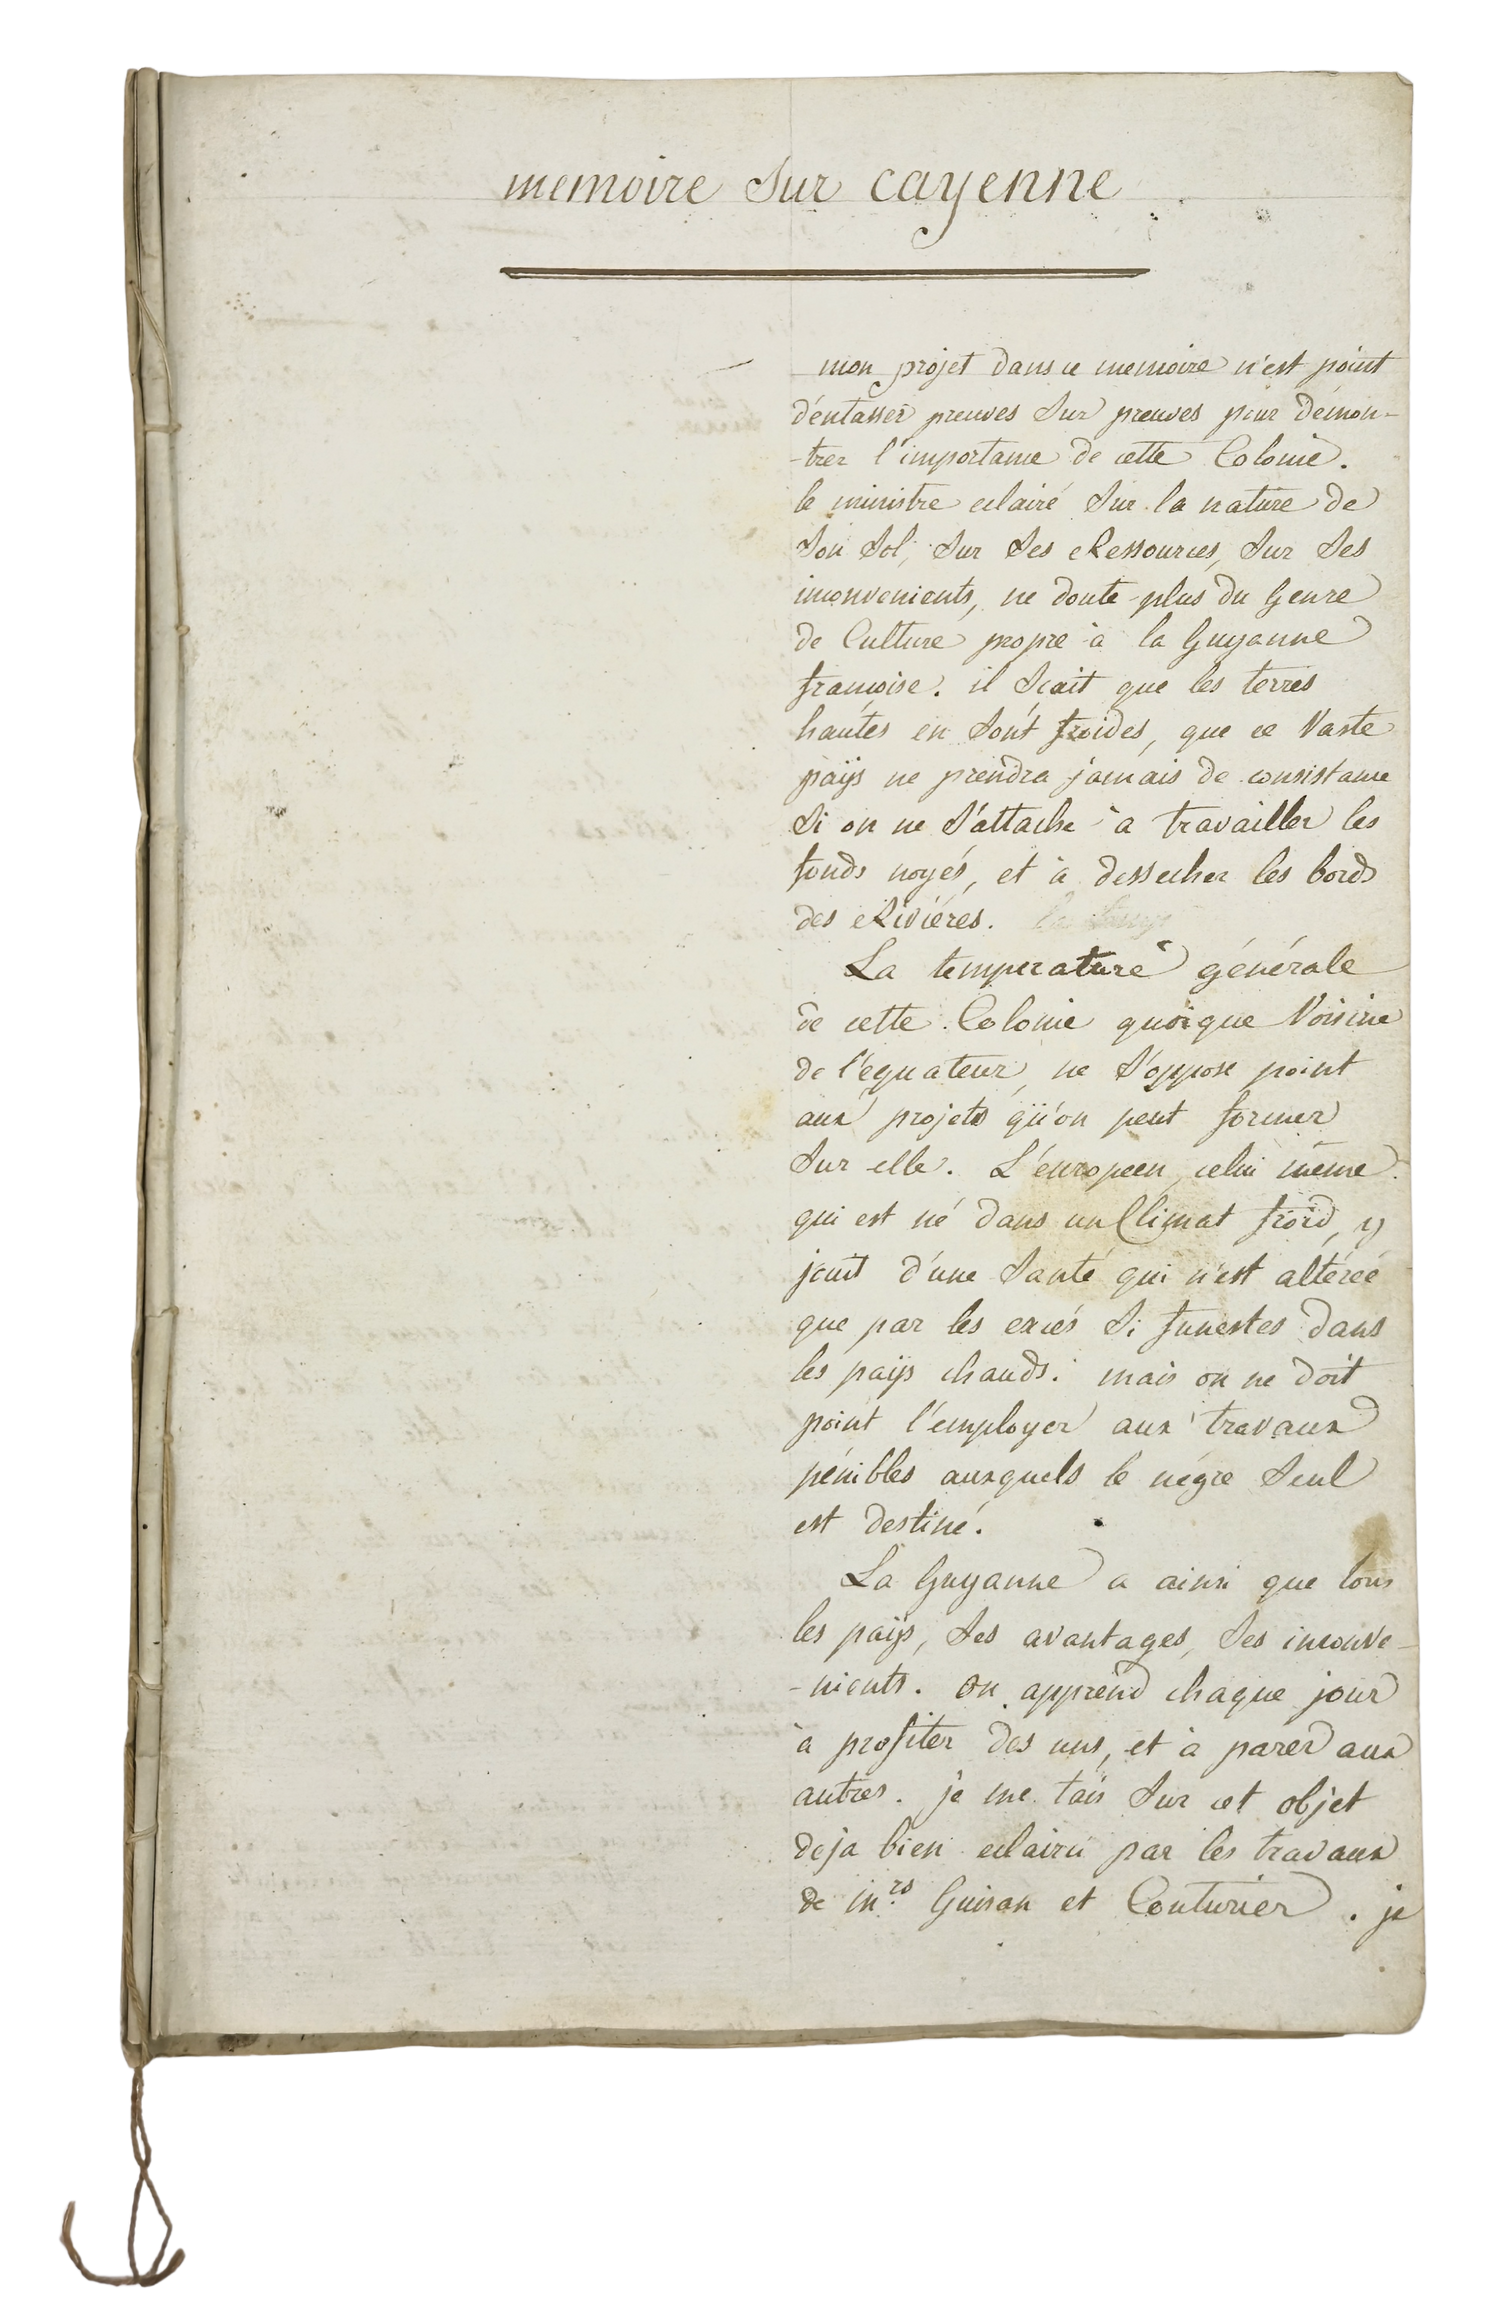 memoire Sur cayenne
mon projet dans ce memoire n'est point
d'entasser preuves Sur preuves pour démon-
-trer l'importance de cette Colonie.
le ministre eclairé Sur la nature de
Son Sol, Sur Ses Ressources, Sur Ses
inconvenients, ne doute plus du Genre
de Culture propre à la Guyanne
françoise. il Sçait que les terres
hautes en Sont froides, que ce Vaste
païs ne prendra jamais de consistance
Si on ne S'attache à travailler les
fonds noyés, et à dessecher les bords
des Riviéres.
La temperature générale
de cette Colonie quoique Voisine
de l'équateur, ne S'oppose point
aux projets qu'on peut former
Sur elle. L'européen, celui même
qui est né dans un Climat froid, y
jouit d'une Santé qui n'est altérée
que par les excés Si funestes dans
les païs chauds. mais on ne doit
point l'employer aux travaux
pénibles auxquels le négre Seul
est destiné.
La Guyanne a ainsi que tous
les païs, Ses avantages, Ses inconve-
-nients. on apprend chaque jour
à profiter des uns, et à parer aux
autres. je me tais Sur cet objet
deja bien eclairci par les travaux
de mrs Guisan et Couturier. je